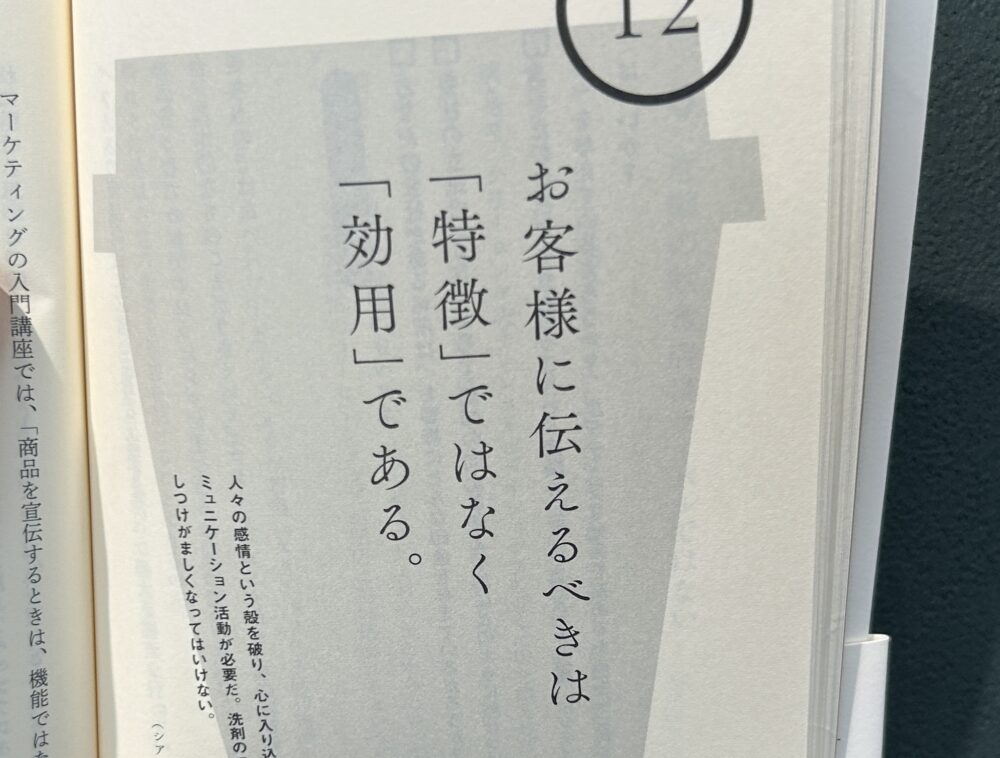 12
お客様に伝えるべきは
「特徴」ではなく
「効用」である。
人々の感情という殻を破り、心に入り込
ミュニケーション活動が必要だ。洗剤の
しつけがましくなってはいけない。
(シア
マーケティングの入門講座では、「商品を宣伝するときは、機能では